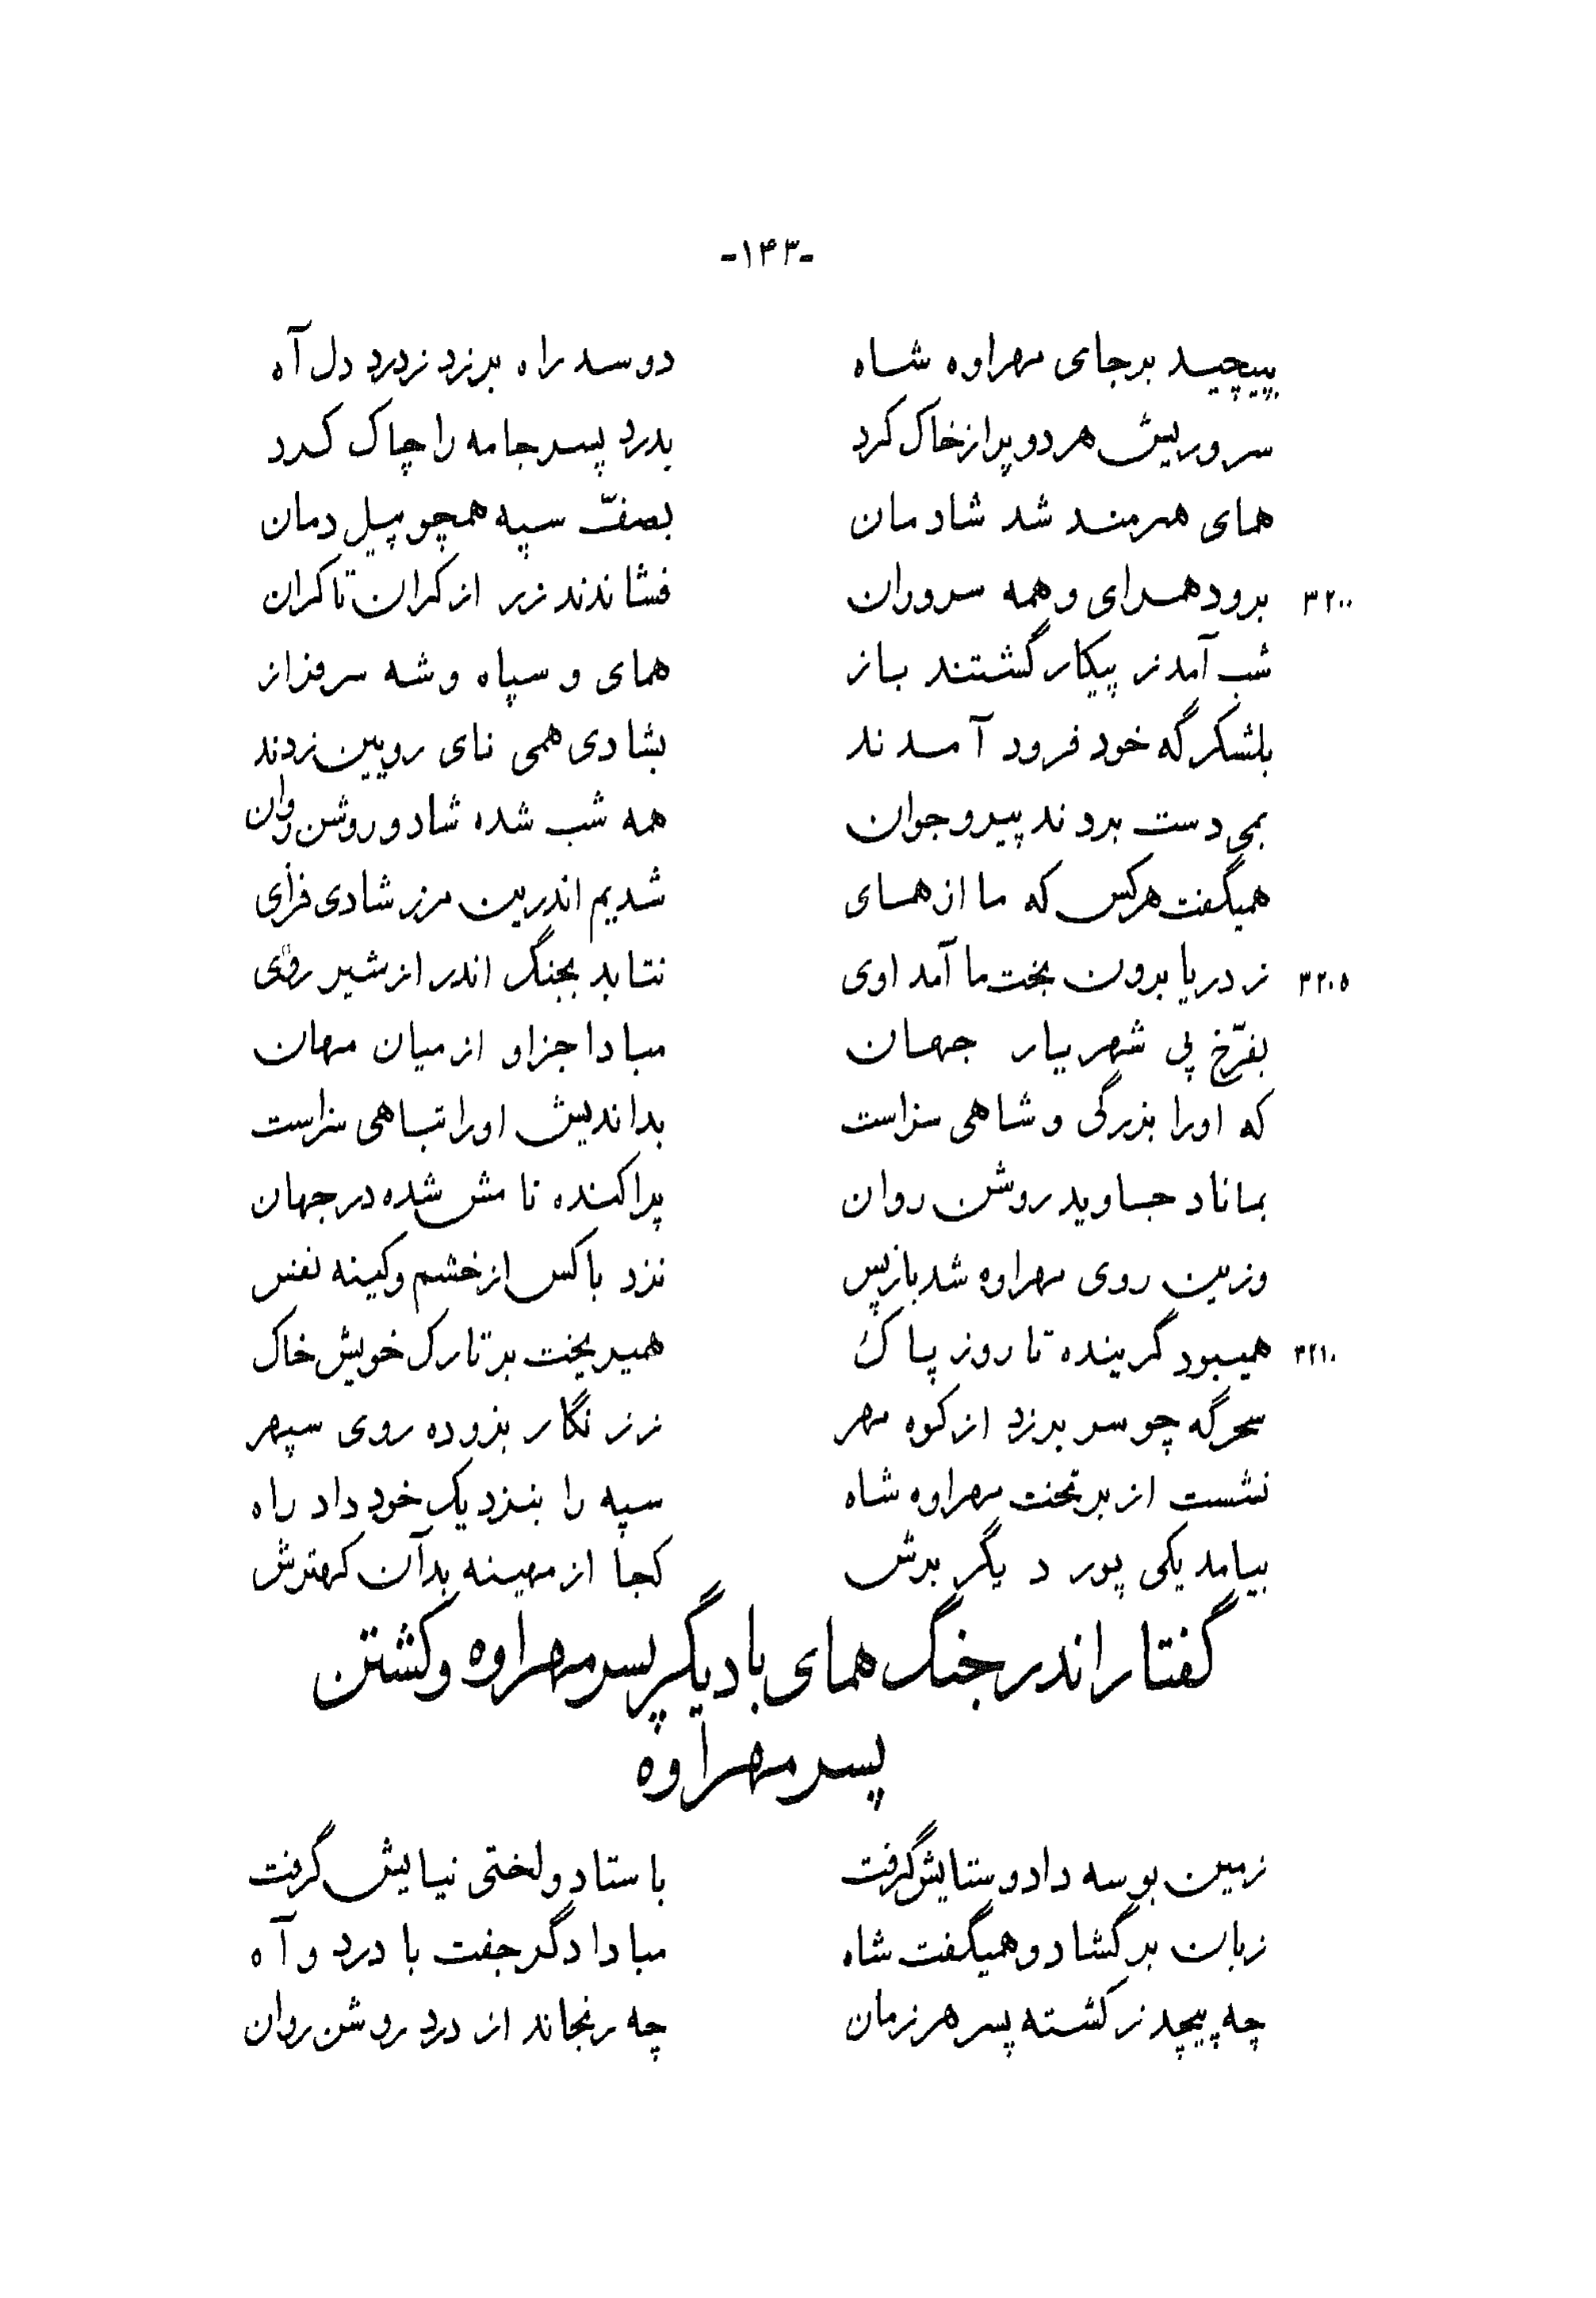 -۱۴۳-
بپیچید بر جای مهراوه شاه دو سد راه برزد ز درد دل آه
سر و ریش هر دو پر از خاک کرد بدرد پسر جامه را چاک کرد
همای هنرمند شد شادمان بصفّ سپه همچو پیل دمان
۳۲۰۰ برو دهسرای و همه سروران فشاندند زر از کران تا کران
شب آمد ز پیکار گشتند باز همای و سپاه و شه سرفراز
بلشکرگه خود فرود آمدند بشادی همی نای رویین زدند
بمی دست بردند پیر و جوان همه شب شده شاد و روشن روان
همیگفت هرکس که ما از همای شدیم اندرین مرز شادی فزای
۳۲۰۵ ز دریا برون بخت ما آمد اوی نتابد بجنگ اندر از شیر روی
بفرّخ پی شهریار جهان مبادا جز او از میان مهان
که او را بزرگی و شاهی سزاست بداندیش او را تباهی سزاست
بماناد جاوید روشن روان پراکنده نامش شده در جهان
وزین روی مهراوه شد بازپس نزد با کس از خشم و کینه نفس
۳۲۱۰ همیبود گرینده تا روز پاک همیریخت بر تارک خویش خاک
سحرگه چو سر برزد از کوه مهر ز زنگار بزدوده روی سپهر
نشست از بر تخت مهراوه شاه سپه را بنزدیک خود داد راه
بیامد یکی پور دیگر برش کجا از مهینه بدآن کهترش
گفتار اندر جنگ همای با دیگر پسر مهراوه و کشتن
پسر مهراوه
زمین بوسه داد و ستایش گرفت باستاد و لختی نیایش گرفت
زبان برگشاد و همیگفت شاه مبادا دگر جفت با درد و آه
چه پیچد ز کشته پسر هر زمان چه رنجاند از درد روشن روان